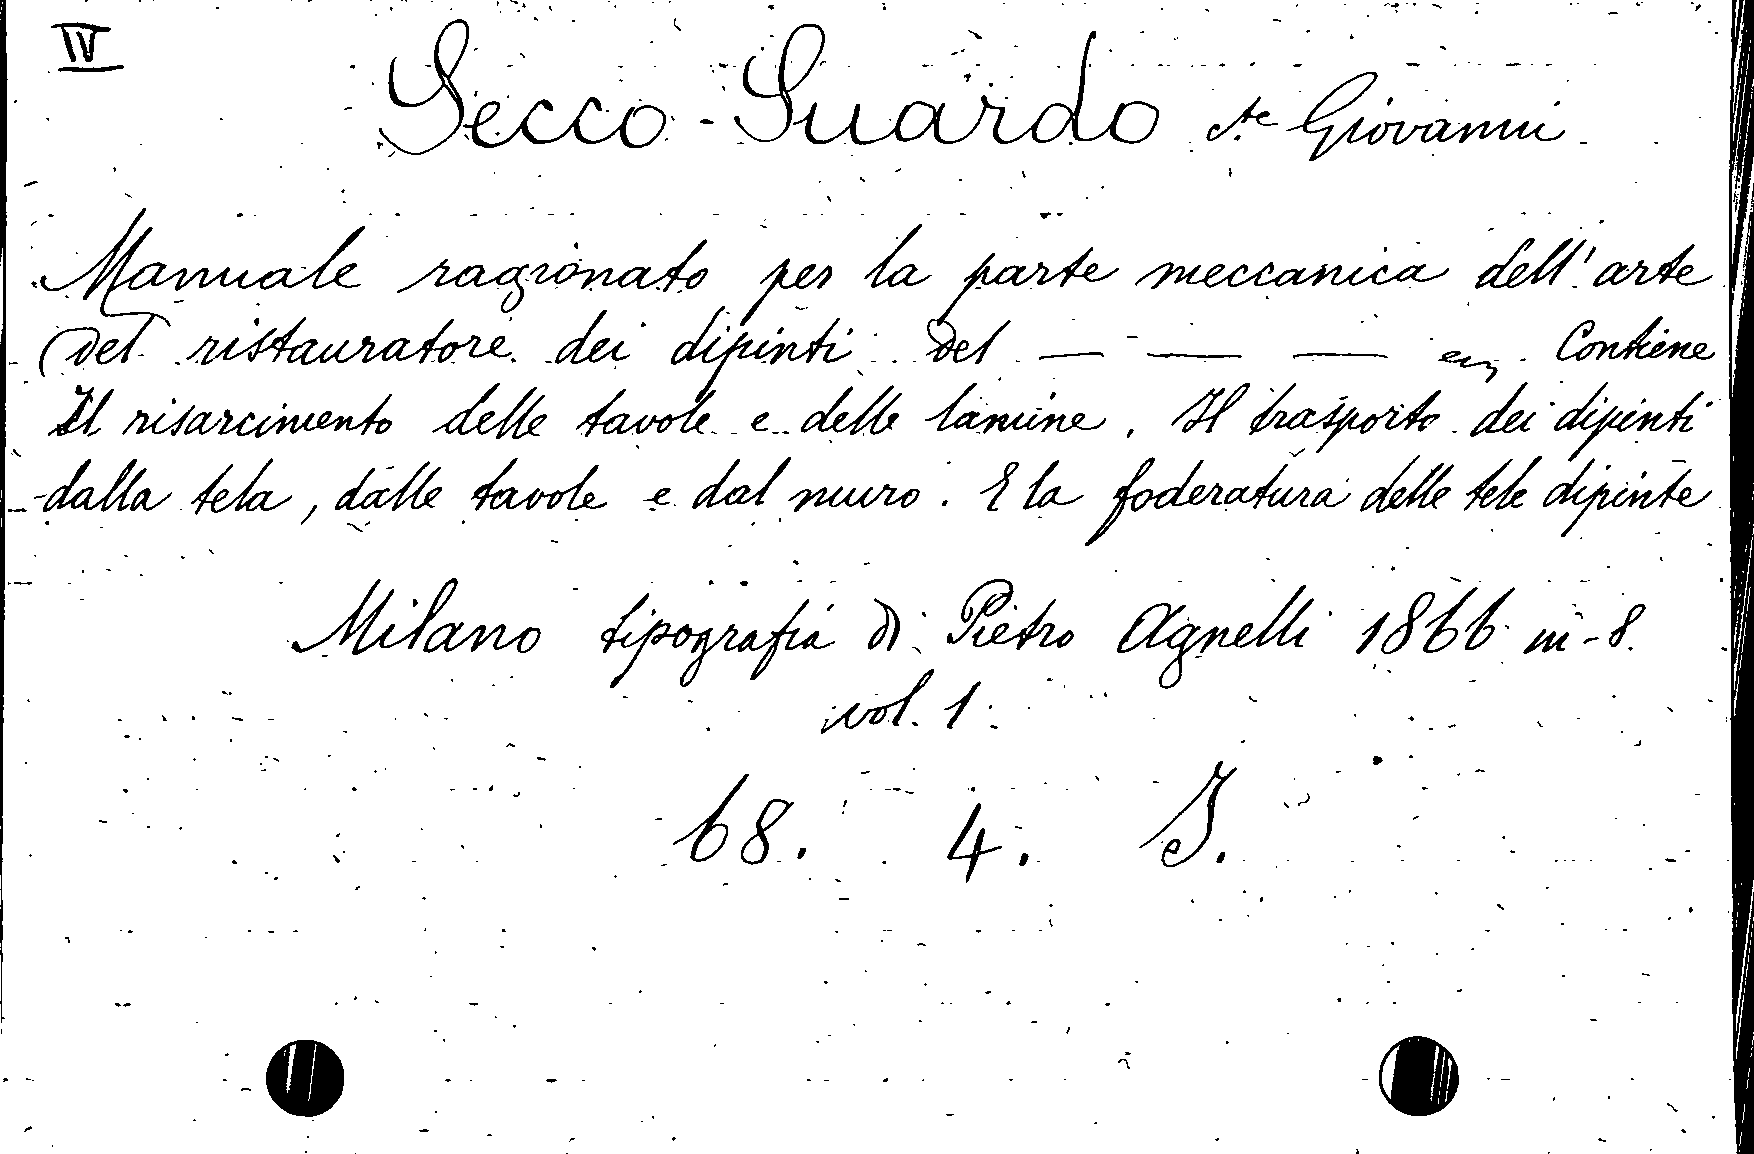 IV
Secco-Suardo cte Giovanni
Manuale ragionato per la parte meccanica dell'arte
del ristauratore dei dipinti del — — — Contiene
Il risarcimento delle tavole e delle lamine. Il trasporto dei dipinti
dalla tela, dalle tavole e dal muro. E la foderatura delle tele dipinte
Milano tipografia di Pietro Agnelli 1866 in-8.
vol. 1.
68. 4. I.